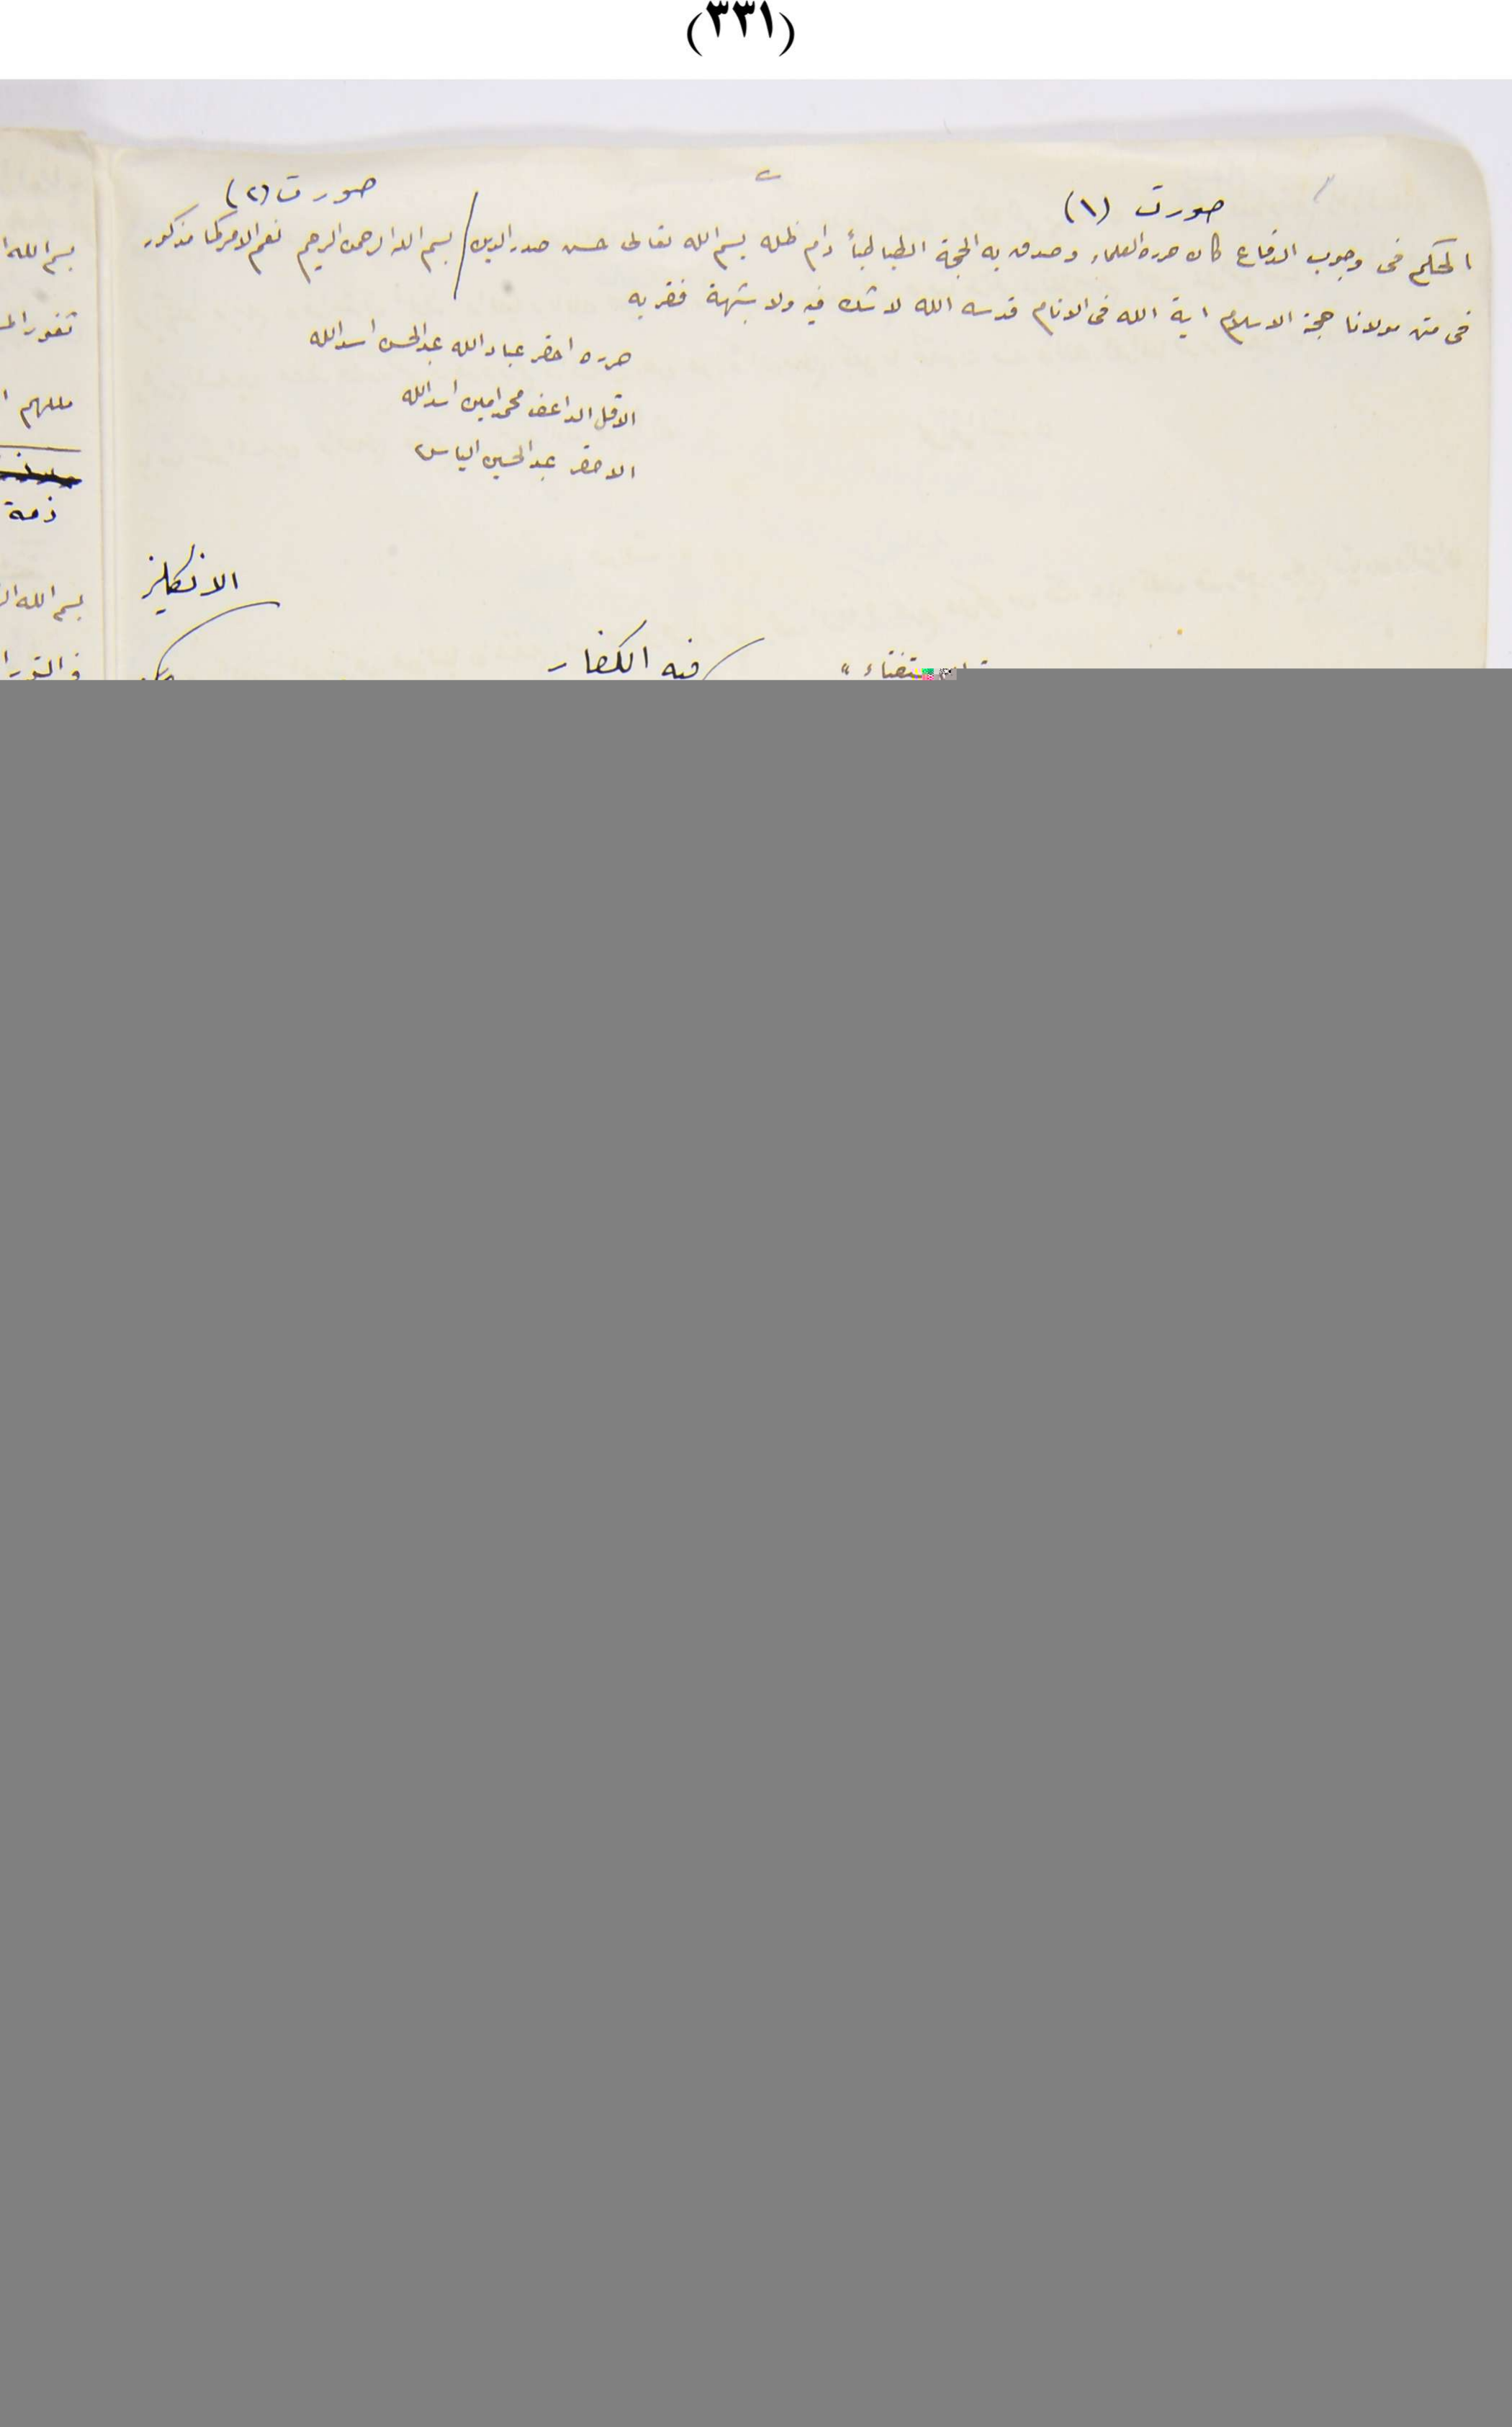 (٣٣١)
صورت (١)
صورت (٢)
الحكم فى وجوب الدفاع كان حرره العلماء وصدق به الحجة الطباطبأ دام ظله بسم الله تعالى حسن صدر الدين / بسم الله الرحمن الرحيم نعم الامر كما مذكور
فى متن مولانا حجة الاسلام اية الله فى الانام قدسه الله لا شك فيه ولا شبهة فقر به
حرره احقر عباد الله عبد الحسن اسد الله
الاقل محمد امين اسد الله
الاحقر عبد الحسين الياس
الانكليز
فيه الكفار
بسم الله
ذمة
بسم الله